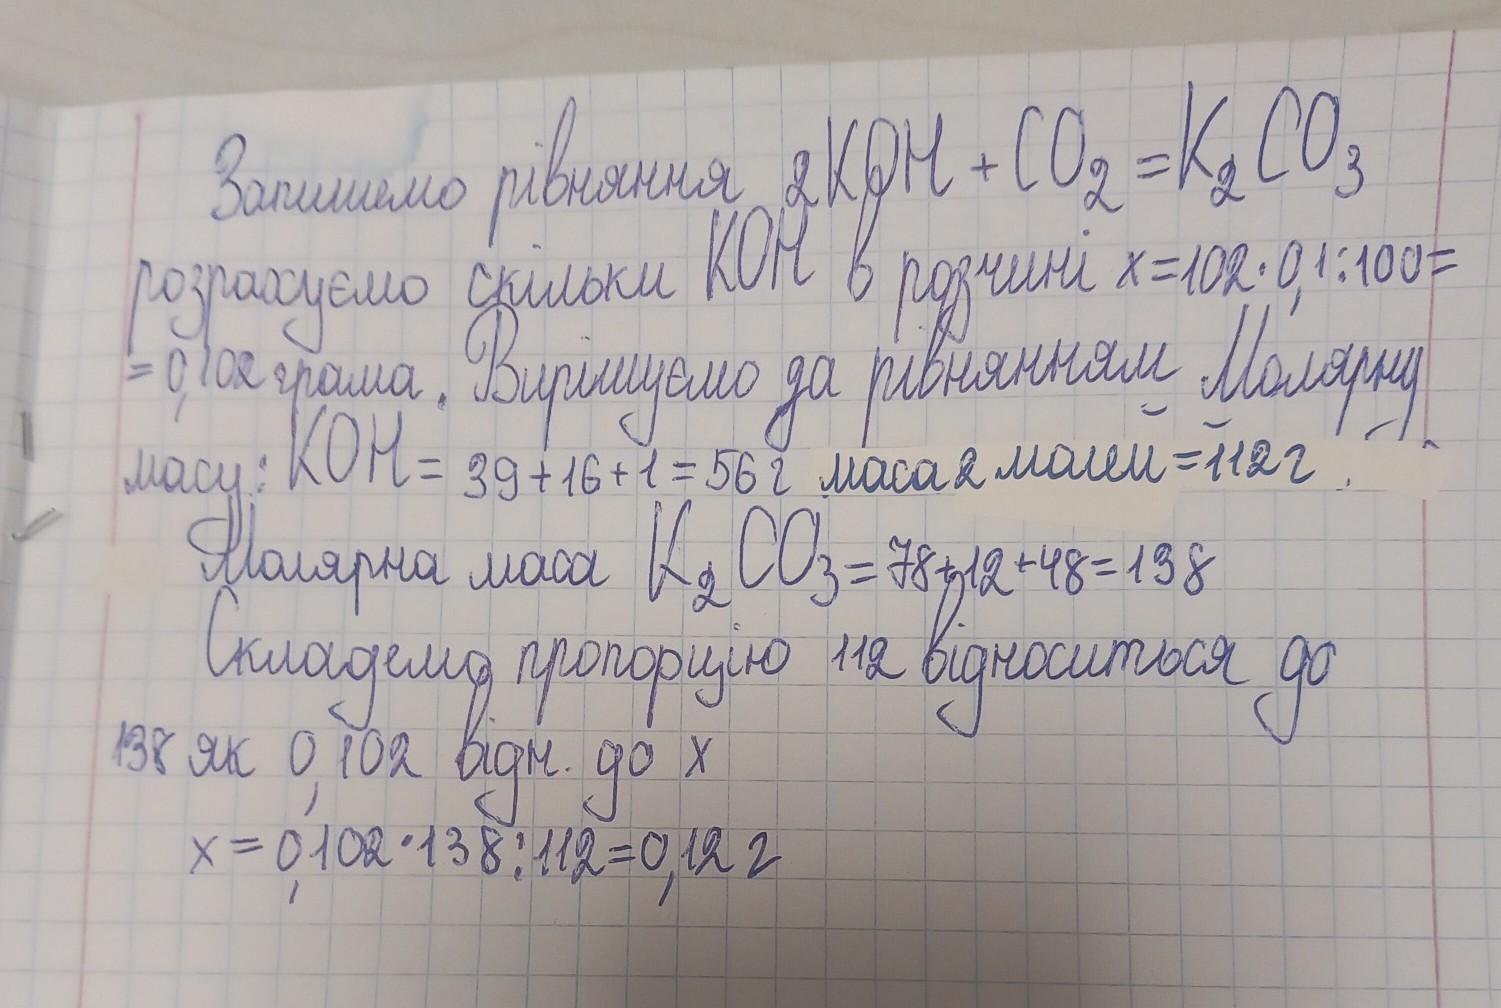 Запишемо рівняння 2KOH + CO₂ = K₂CO₃
розрахуємо скільки KOH в розчині x=102·0,1:100=
= 0,102 грама. Вирішуємо за рівнянням Молярну
масу: KOH = 39+16+1=56 г маса 2 молей = 112 г.
Молярна маса K₂CO₃ = 78+12+48=138
Складемо пропорцію 112 відноситься до
138 як 0,102 відн. до x
x = 0,102·138:112=0,12 г